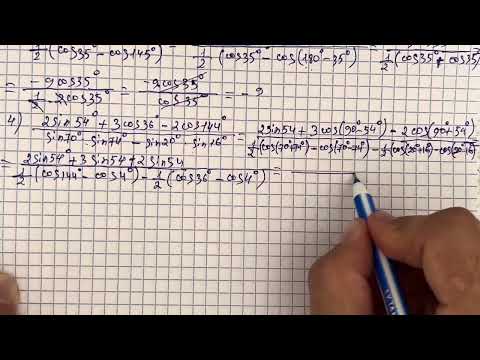 ½(cos35° - cos145°) - ½(cos35° - cos(180° - 35°) ½(cos35° + cos35°)
= -9cos35° / ½ · 2cos35° = -9cos35° / cos35° = -9
4) 2sin54° + 3cos36° - 2cos144° / sin70° · sin74° - sin20° · sin16° = 2sin54 + 3cos(90° - 54°) - 2cos(90° + 54°) / ½(cos(70° + 74°) - cos(70° - 74°) - ½(cos(20° + 16°) - cos(20° - 16°)
= 2sin54° + 3sin54 + 2sin54 / ½(cos144° - cos4°) - ½(cos36° - cos4°) =